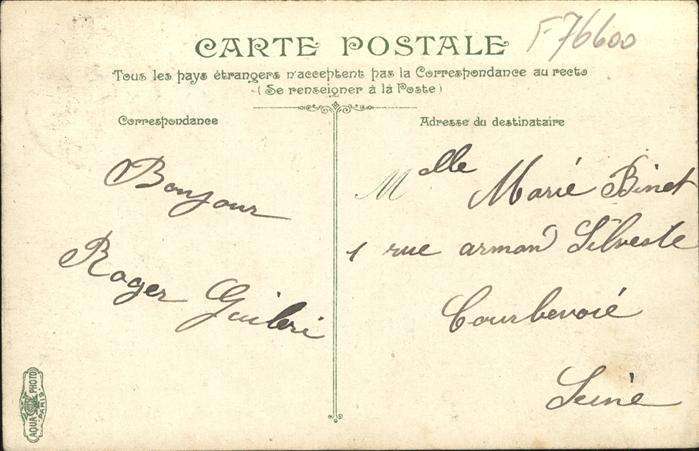 CARTE POSTALE
F 76600
Tous les pays étrangers n'acceptent pas la Correspondance au recto
(Se renseigner à la Poste)
Correspondance
Bonjour
Roger Guileri
Adresse du destinataire
Mlle Marie Binet
1 rue armand Silveste
Courbevoie
Seine
AQUA PHOTO
PARIS